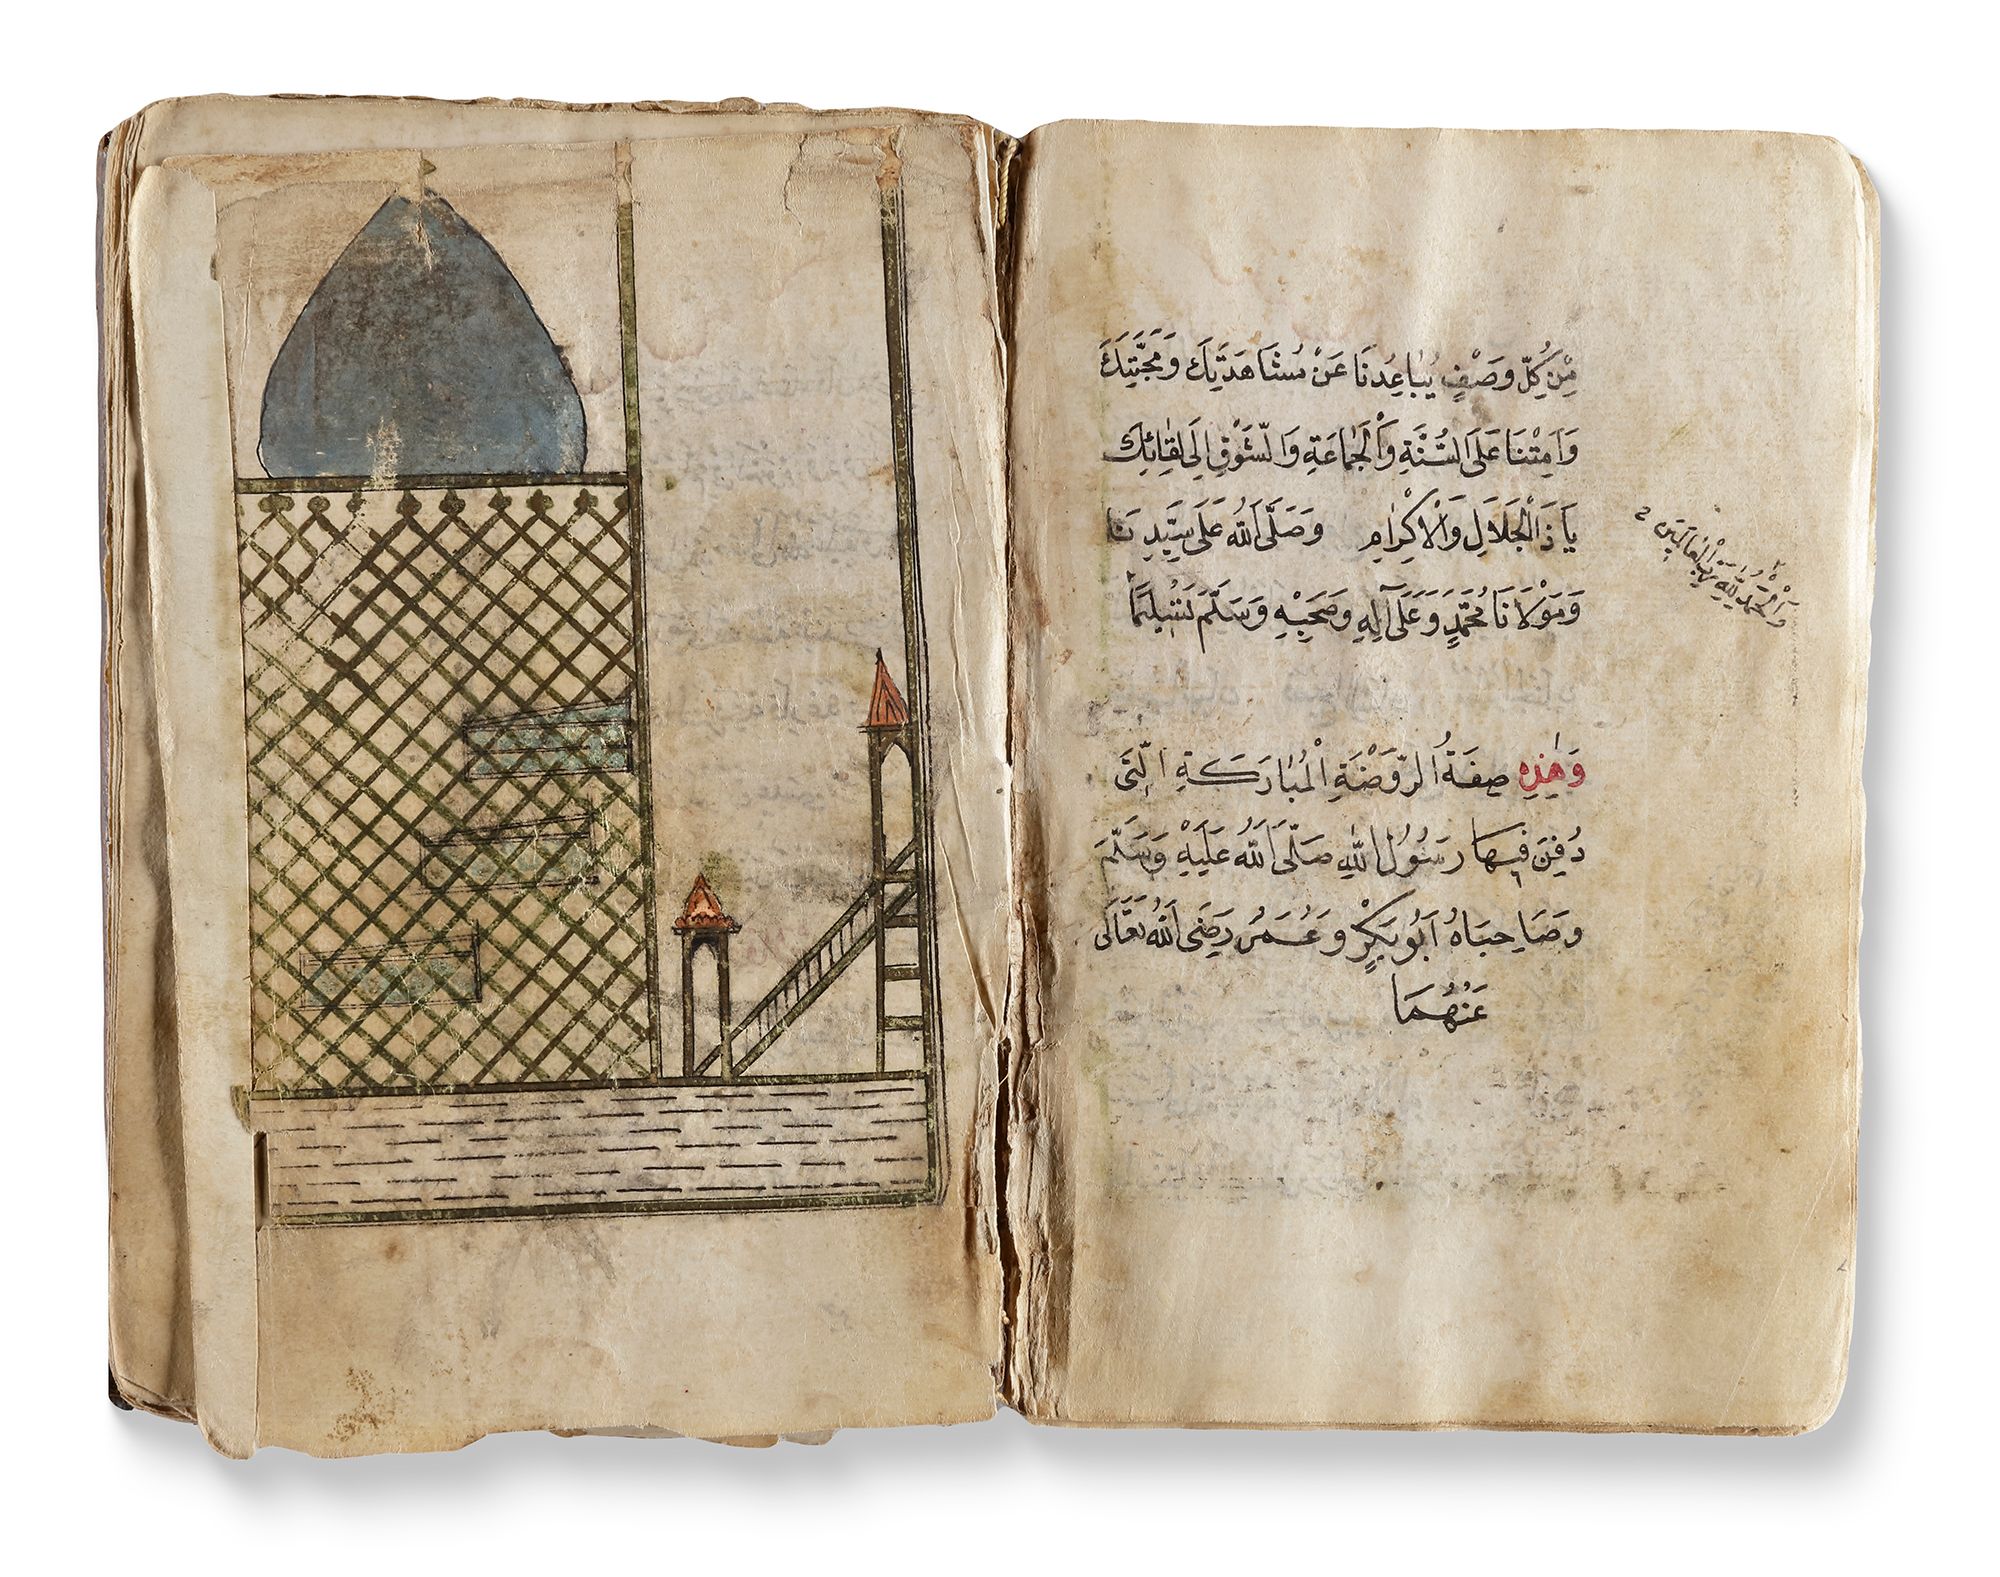 مِنْ كُلِّ وَصْفٍ يُبَاعِدُنَا عَنْ مُشَاهَدَتِكَ وَمَحَبَّتِكَ
وَاَمِتْنَا عَلَى السُّنَّةِ وَالْجَمَاعَةِ وَالشَّوْقِ اِلَى لِقَائِكَ
يَا ذَا الْجَلَالِ وَالْاِكْرَامِ وَصَلَّى اللهُ عَلَى سَيِّدِنَا
وَمَوْلَانَا مُحَمَّدٍ وَعَلَى آلِهِ وَصَحْبِهِ وَسَلَّمَ تَسْلِيمًا
وَالْحَمْدُ لِلّٰهِ رَبِّ الْعَالَمِينَ
وَهٰذِهِ صِفَةُ الرَّوْضَةِ الْمُبَارَكَةِ الَّتِي
دُفِنَ فِيهَا رَسُولُ اللهِ صَلَّى اللهُ عَلَيْهِ وَسَلَّمَ
وَصَاحِبَاهُ اَبُو بَكْرٍ وَعُمَرُ رَضِيَ اللهُ تَعَالَى
عَنْهُمَا